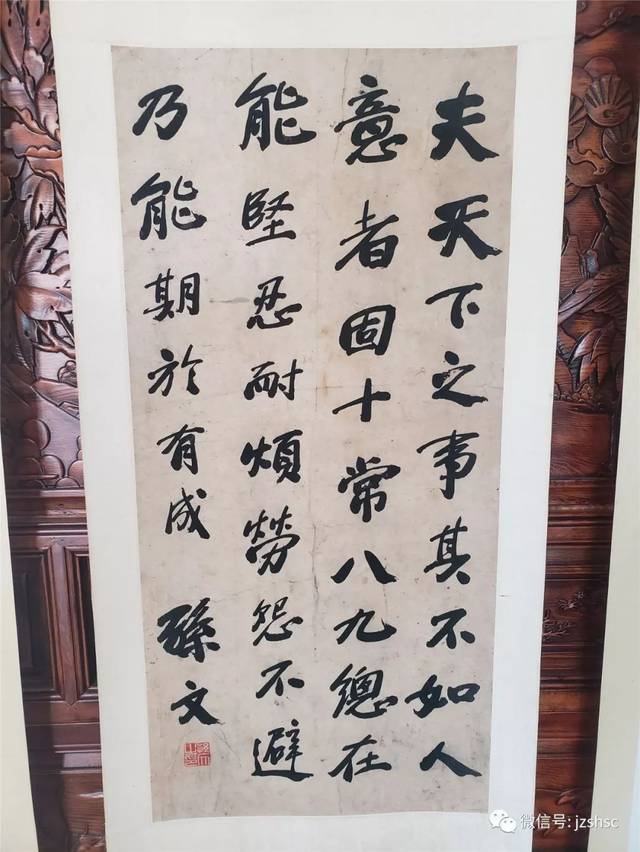 夫天下之事其不如人
意者固十常八九總在
能堅忍耐煩勞怨不避
乃能期於有成
孫文
微信号: jzshsc